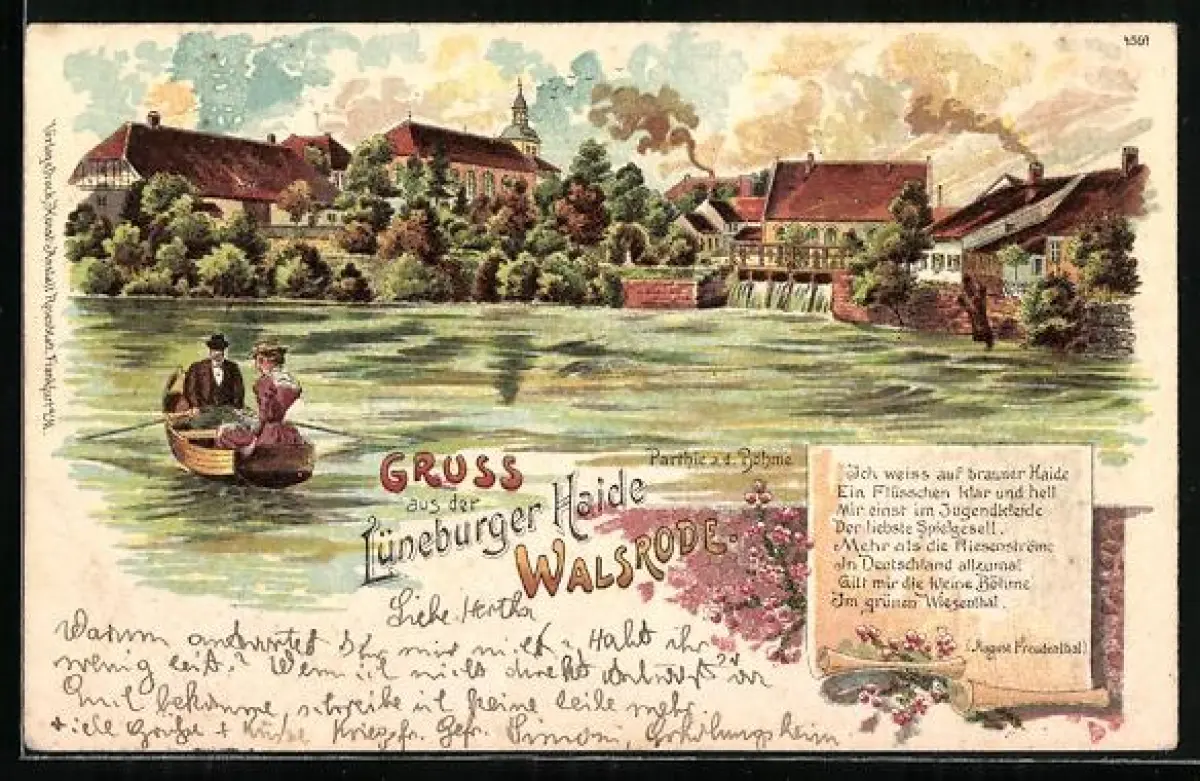 4591
Verlag u. Druck: Kunst-Anstalt Rosenblatt Frankfurt a/M.
Parthie a.d. Böhme
GRUSS
aus der
Lüneburger Haide
WALSRODE.
Ich weiss auf brauner Haide
Ein Flüsschen klar und hell
Mir einst im Jugendkleide
Der liebste Spielgesell.
Mehr als die Riesenströme
In Deutschland allzumal
Gilt mir die kleine Böhme
Im grünen Wiesenthal.
(August Freudenthal)
Liebe Hertha
Warum antwortet Ihr mir nicht, Habt ihr
wenig Zeit? Wenn ich nicht direkt Antwort
bekomme, schreibe ich keine Zeile mehr.
Viele Grüße + Küsse Kriegsfr. Gefr. Simoni, Erholungsheim